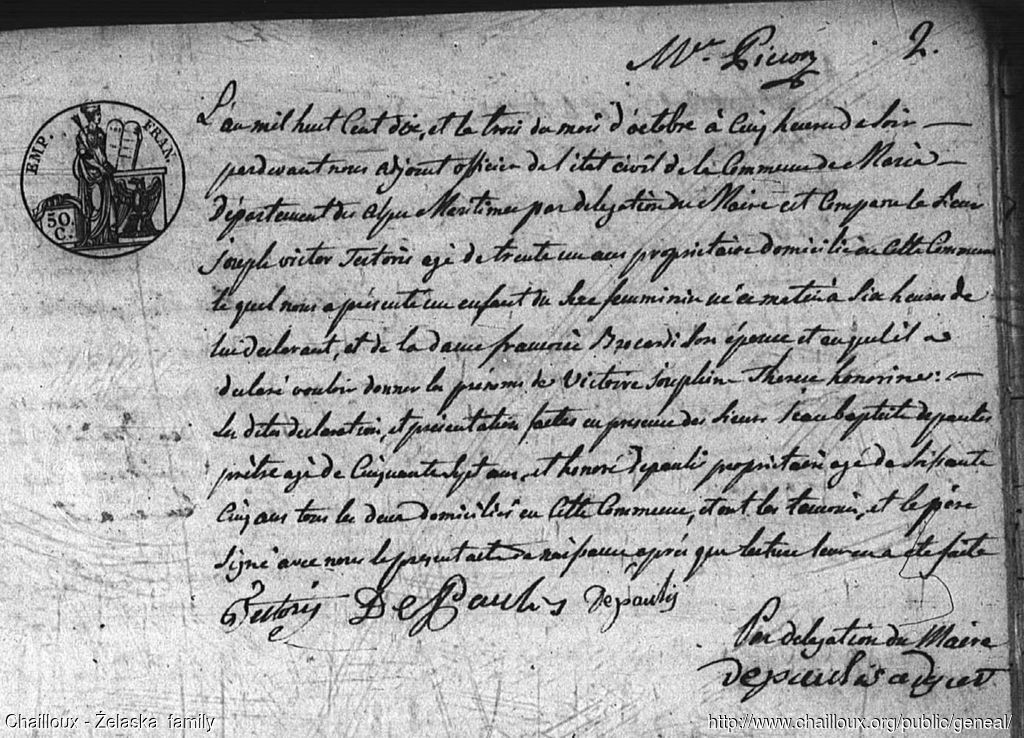 2.
EMP. FRAN.
50
C.
L'an mil huit Cent dix, et le trois du mois d'octobre à Cinq heures de Soir
pardevant nous adjoint officier de l'état civil de la Commune de Marie
département des alpes Maritimes par delegation du Maire est Comparu le Sieur
Joseph victor Tertoris agé de trente un ans proprietaire domicilié en Cette Commune
le quel nous a présenté un enfant du Sexe feminin né ce matin à Six heures de
lui declarant, et de la dame francoise Brocardi Son épouse et auquel il a
declaré vouloir donner les prénoms de Victoire Josephine Therese honorine:
Les dites declaration, et présentation faites en presence des Sieurs Jean baptiste depaulis
prêtre agé de Cinquante Sept ans, et honoré depaulis proprietaire agé de Soissante
Cinq ans tous les deux domiciliés en Cette Commune, et ont les temoins, et le père
Signé avec nous le present acte de naissance après que lecture leur en a été faite
Tertoris DePaulis Depaulis
Par delegation du Maire
depaulis adjoint
Chailloux - Żelaska family
http://www.chailloux.org/public/geneal/